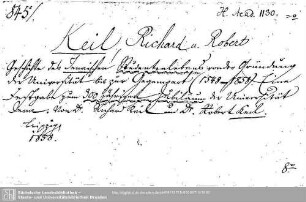 845/.
H. Acad. 1130.
Keil, Richard u. Robert
Geschichte des Jenaischen Studentenlebens von der Gründung
der Universität bis zur Gegenwart (1548-1858). Eine
Festgabe zum 300jährigen Jubiläum der Universität
Jena. Von Dr. Richard Keil und Dr. Robert Keil.
Leipzig
1858.
8°
Sächsische Landesbibliothek -
Staats- und Universitätsbibliothek Dresden